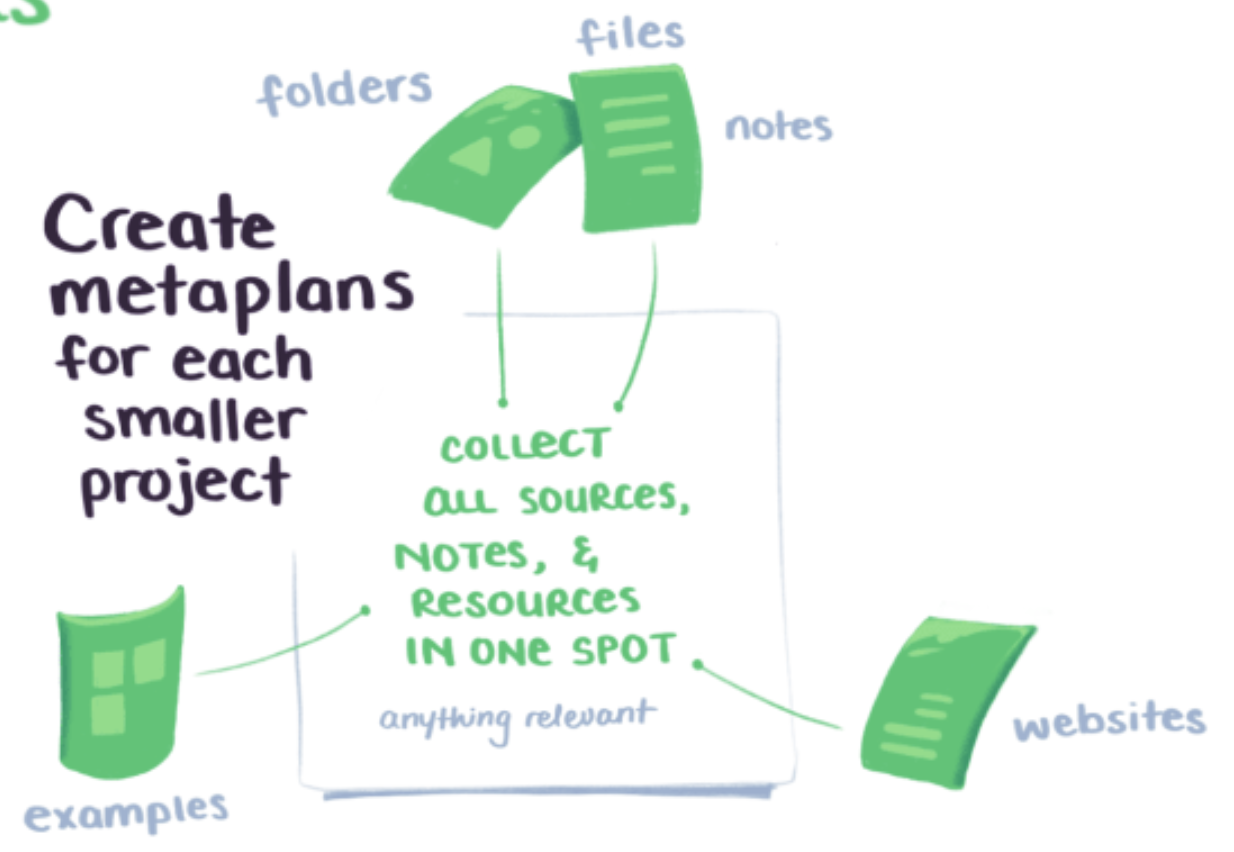 files
folders
notes
Create
metaplans
for each
smaller
project
COLLECT
ALL SOURCES,
NOTES, &
RESOURCES
IN ONE SPOT
anything relevant
websites
examples